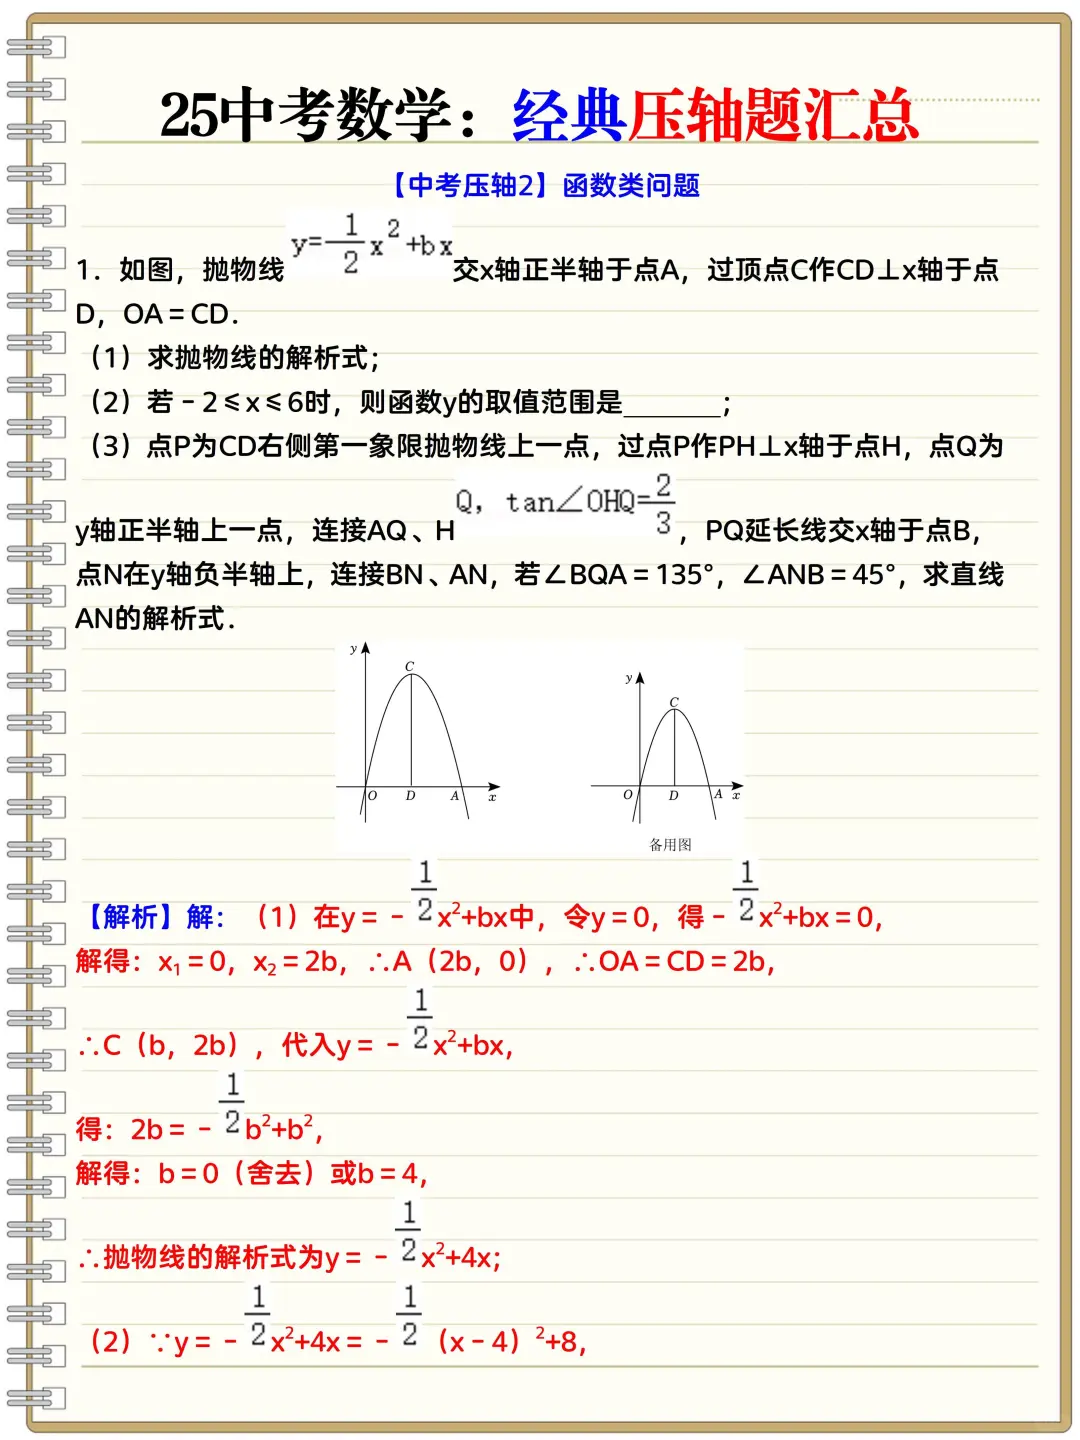 25中考数学：经典压轴题汇总
【中考压轴2】函数类问题
1．如图，抛物线y=-1/2x²+bx交x轴正半轴于点A，过顶点C作CD⊥x轴于点
D，OA＝CD．
（1）求抛物线的解析式；
（2）若﹣2≤x≤6时，则函数y的取值范围是_______；
（3）点P为CD右侧第一象限抛物线上一点，过点P作PH⊥x轴于点H，点Q为
y轴正半轴上一点，连接AQ、HQ，tan∠OHQ=2/3，PQ延长线交x轴于点B，
点N在y轴负半轴上，连接BN、AN，若∠BQA＝135°，∠ANB＝45°，求直线
AN的解析式．
y C O D A x
y C O D A x
备用图
【解析】解：（1）在y＝﹣1/2x²+bx中，令y＝0，得﹣1/2x²+bx＝0，
解得：x₁＝0，x₂＝2b，∴A（2b，0），∴OA＝CD＝2b，
∴C（b，2b），代入y＝﹣1/2x²+bx，
得：2b＝﹣1/2b²+b²，
解得：b＝0（舍去）或b＝4，
∴抛物线的解析式为y＝﹣1/2x²+4x；
（2）∵y＝﹣1/2x²+4x＝﹣1/2（x﹣4）²+8，